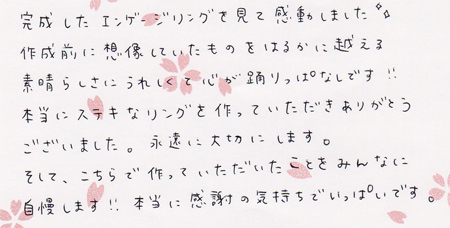 完成したエンゲージリングを見て感動しました✧
作成前に想像していたものをはるかに越える
素晴らしさにうれしくて心が踊りっぱなしです!!
本当にステキなリングを作っていただきありがとう
ございました。永遠に大切にします。
そして、こちらで作っていただいたことをみんなに
自慢します!! 本当に感謝の気持ちでいっぱいです。